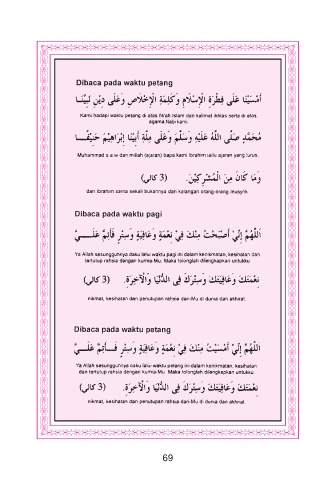 Dibaca pada waktu petang
أَمْسَيْنَا عَلَى فِطْرَةِ الْإِسْلَامِ وَكَلِمَةِ الْإِخْلَاصِ وَعَلَى دِيْنِ نَبِيِّنَـا
Kami hadapi waktu petang di atas fitrah Islam dan kalimat ikhlas serta di atas
agama Nabi kami
مُحَمَّدٍ صَلَّى اللهُ عَلَيْهِ وَسَلَّمَ وَعَلَى مِلَّةِ أَبِيْنَا إِبْرَاهِيْمَ حَنِيْفًـــا
Muhammad s.a.w dan millah (ajaran) bapa kami Ibrahim iaitu ajaran yang lurus,
وَمَا كَانَ مِنَ الْمُشْرِكِيْنَ. (3 كالي)
dan Ibrahim sama sekali bukannya dari kalangan orang-orang musyrik
Dibaca pada waktu pagi
اَللّٰهُمَّ إِنِّيْ أَصْبَحْتُ مِنْكَ فِيْ نِعْمَةٍ وَعَافِيَةٍ وَسِتْرٍ فَأَتِمَّ عَلَـــــيَّ
Ya Allah sesungguhnya daku lalu waktu pagi ini dalam kenikmatan, kesihatan dan
tertutup rahsia dengan kurnia-Mu. Maka tolonglah dilengkapkan untukku
نِعْمَتَكَ وَعَافِيَتَكَ وَسِتْرَكَ فِى الدُّنْيَا وَالْآخِرَةِ. (3 كالي)
nikmat, kesihatan dan penutupan rahsia dari-Mu di dunia dan akhirat.
Dibaca pada waktu petang
اَللّٰهُمَّ إِنِّيْ أَمْسَيْتُ مِنْكَ فِيْ نِعْمَةٍ وَعَافِيَةٍ وَسِتْرٍ فَـــأَتِمَّ عَلَـــيَّ
Ya Allah sesungguhnya daku lalu waktu petang ini dalam kenikmatan, kesihatan
dan tertutup rahsia dengan kurnia-Mu. Maka tolonglah dilengkapkan untukku
نِعْمَتَكَ وَعَافِيَتَكَ وَسِتْرَكَ فِى الدُّنْيَا وَالْآخِرَةِ. (3 كالي)
nikmat, kesihatan dan penutupan rahsia dari-Mu di dunia dan akhirat.
69